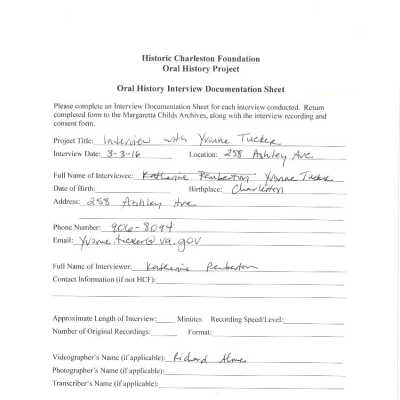 Historic Charleston Foundation
Oral History Project
Oral History Interview Documentation Sheet
Please complete an Interview Documentation Sheet for each interview conducted. Return
completed form to the Margaretta Childs Archives, along with the interview recording and
consent form.
Project Title: Interview with Yvonne Tucker
Interview Date: 3-3-16 Location: 258 Ashley Ave.
Full Name of Interviewee: Katherine Pemberton Yvonne Tucker
Date of Birth: Birthplace: Charleston
Address: 258 Ashley Ave
Phone Number: 906-8094
Email: Yvonne.tucker@va.gov
Full Name of Interviewer: Katherine Pemberton
Contact Information (if not HCF):
Approximate Length of Interview: Minutes Recording Speed/Level:
Number of Original Recordings: Format:
Videographer's Name (if applicable): Richard
Photographer's Name (if applicable):
Transcriber's Name (if applicable):